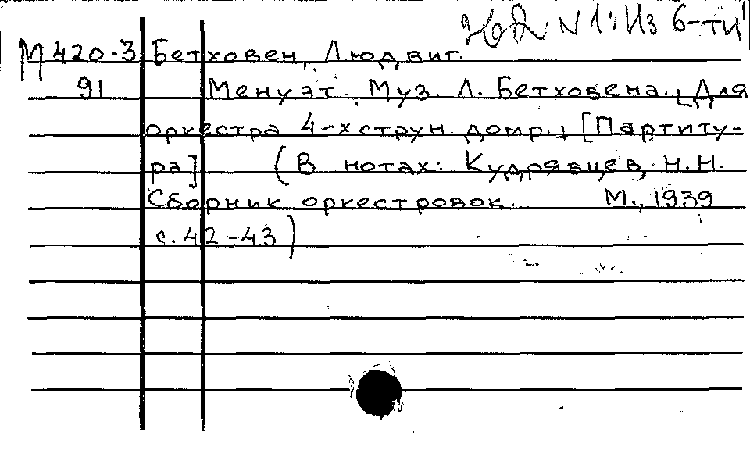 N 1: Из 6-ти
М 420-3 Бетховен, Людвиг.
91 Менуэт. Муз. Л. Бетховена. Для
оркестра 4-х струн. домр. [Партиту-
ра] (В нотах: Кудрявцев, Н.Н.
Сборник оркестровок. М., 1939
с. 42-43)